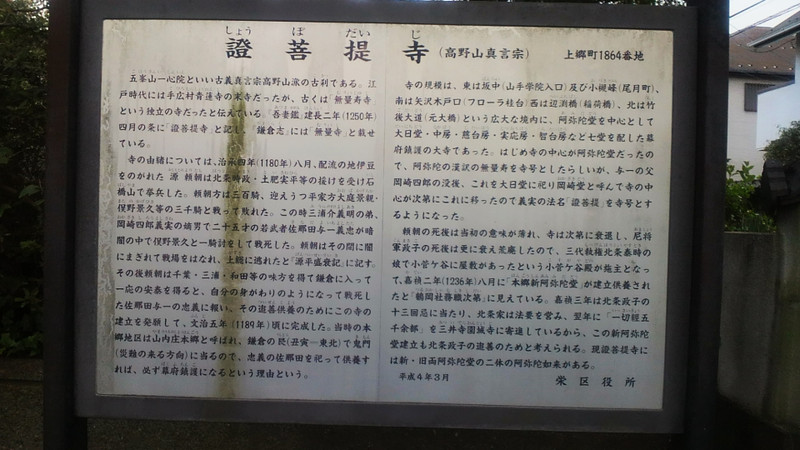 しょう ぼ だい じ
證菩提寺 (高野山真言宗) 上郷町1864番地
五峯山一心院といい古義真言宗高野山派の古刹である。江
戸時代には手広村青蓮寺の末寺だったが、古くは「無量寿寺」
という独立の寺だったと伝えている。「吾妻鑑」建長二年(1250年)
四月の条に「證菩提寺」と記し、「鎌倉志」には「無量寺」と載せ
ている。
寺の由緒については、治承四年(1180年)八月、配流の地伊豆
をのがれた 源 頼朝は北条時政・土肥実平等の援けを受け石
橋山で挙兵した。頼朝方は三百騎、迎えうつ平家方大庭景親・
俣野景久等の三千騎と戦って敗れた。この時三浦介義明の弟、
岡崎四郎義実の嫡男で二十五才の若武者佐那田与一義忠が暗
闇の中で俣野景久と一騎討をして戦死した。頼朝はその間に闇
にまぎれて戦場をはなれ、土穏に逃れたと「源平盛衰記」に記す。
その後頼朝は千葉・三浦・和田等の味方を得て鎌倉に入って
一応の安泰を得ると、自分の身がわりのようになって戦死し
た佐那田与一の忠義に報い、その追善供養のためにこの寺の
建立を発願して、文治五年(1189年)頃に完成した。当時の本
郷地区は山内庄本郷と呼ばれ、鎌倉の艮(丑寅―東北)で鬼門
(災難の来る方向)に当るので、忠義の佐那田を祀って供養す
れば、必ず幕府鎮護になるという理由という。
寺の規模は、東は坂中(山手学院入口)及び小磯峰(尾月町)、
南は矢沢木戸口(フローラ桂台)西は辺渕橋(稲荷橋)、北は竹
後大道(元大橋)という広大な境内に、阿弥陀堂を中心として
大日堂・中房・慈台房・実応房・智台房など七堂を配した幕
府鎮護の大寺であった。はじめ寺の中心が阿弥陀堂だったの
で、阿弥陀の漢訳の無量寿を寺号としたらしいが、与一の父
岡崎四郎の没後、これを大日堂に祀り岡崎堂と呼んで寺の中
心が次第にこれに移ったので義実の法名「證菩提」を寺号とす
るようになった。
頼朝の死後は当初の意味が薄れ、寺は次第に衰退し、尼将
軍政子の死後は更に衰え荒廃したので、三代執権北条泰時の
娘で小菅ケ谷に屋敷があったという小菅ケ谷殿が施主となっ
て、嘉禎二年(1236年)八月に「本郷新阿弥陀堂」が建立供養され
たと「鶴岡社務職次第」に見えている。嘉禎三年は北条政子の
十三回忌に当たり、北条家は法要を営み、翌年に「一切経五
千余部」を三井寺園城寺に寄進しているから、この新阿弥陀
堂建立も北条政子の追善のためと考えられる。現證菩提寺に
は新・旧両阿弥陀堂の二体の阿弥陀如来がある。
平成4年3月 栄区役所